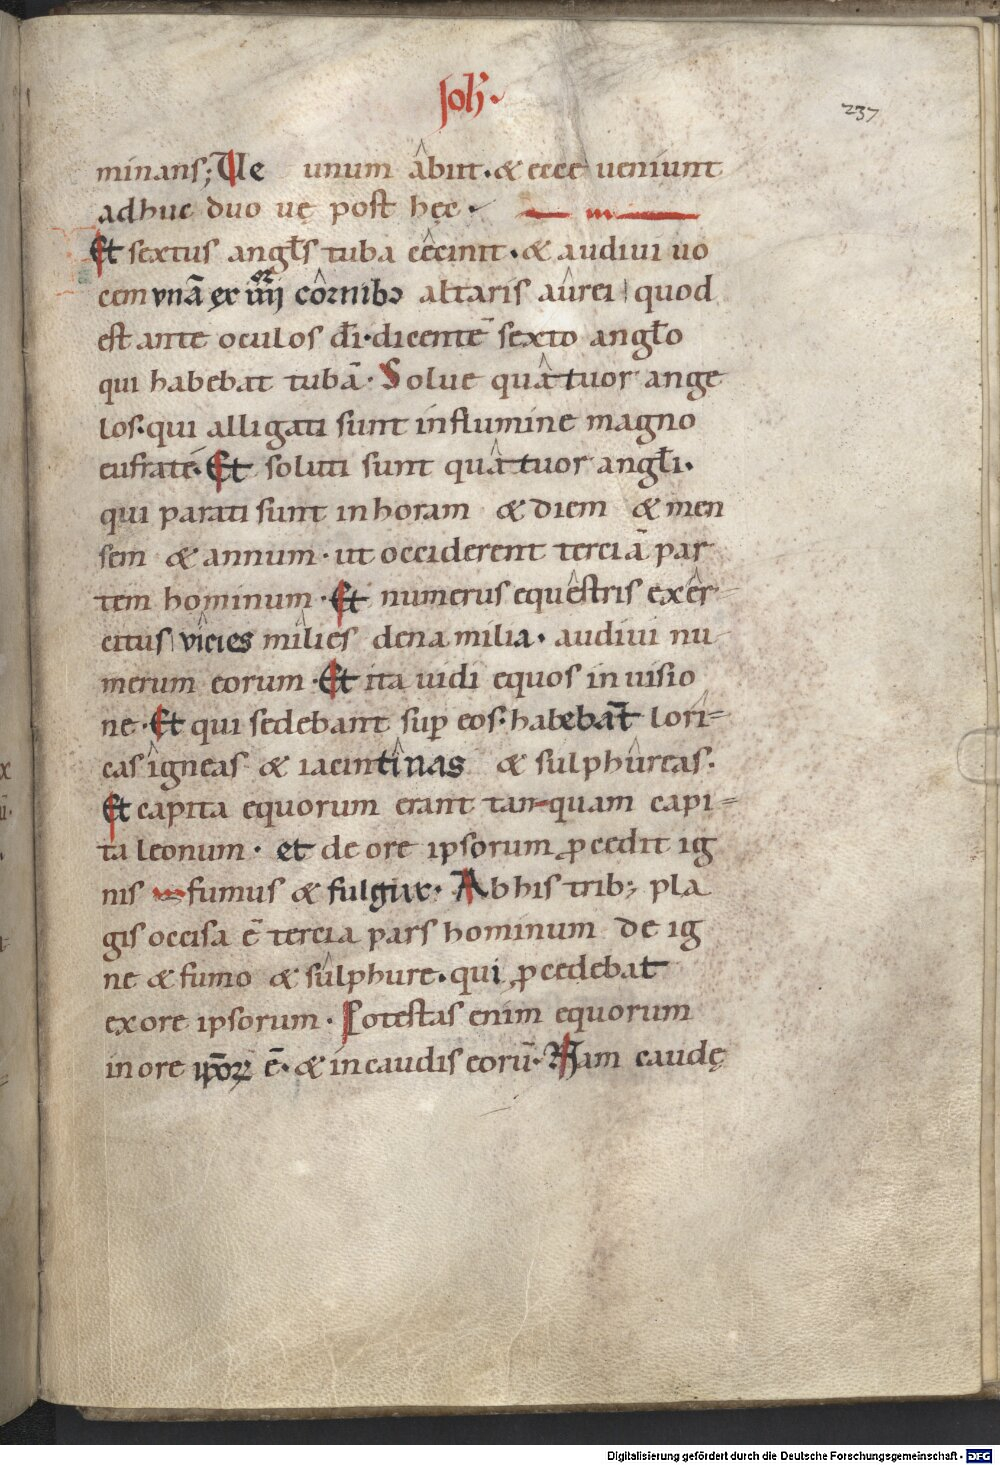 Joh̅.
237
minans; Ue unum abiit. & ecce ueniunt
adhuc duo uę post hęc.
Et sextus angl̅s tuba cecinit. & audiui uo
cem unā ex iiii^or cornibꝰ altaris aurei quod
est ante oculos d̅i. dicente̅ sexto angl̅o
qui habebat tubā. Solue quatuor ange
los. qui alligati sunt in flumine magno
eufrate. Et soluti sunt quatuor angl̅i.
qui parati sunt in horam & diem & men
sem & annum. ut occiderent terciā par
tem hominum. Et numerus equestris exer-
citus vicies milies dena milia. audiui nu
merum eorum. Et ita uidi equos in uisio
ne. Et qui sedebant sup̅ eos. habebāt lori=
cas igneas & iacintinas & sulphureas.
Et capita equorum erant tanquam capi=
ta leonum. et de ore ipsorum ꝓcedit ig
nis fumus & fulgur. Ab his trib; pla
gis occisa ē tercia pars hominum de ig
ne & fumo & sulphure. qui ꝓcedebat
ex ore ipsorum. Potestas enim equorum
in ore ip̅oꝝ ē. & in caudis eorū. Nam caudę
Digitalisierung gefördert durch die Deutsche Forschungsgemeinschaft - DFG